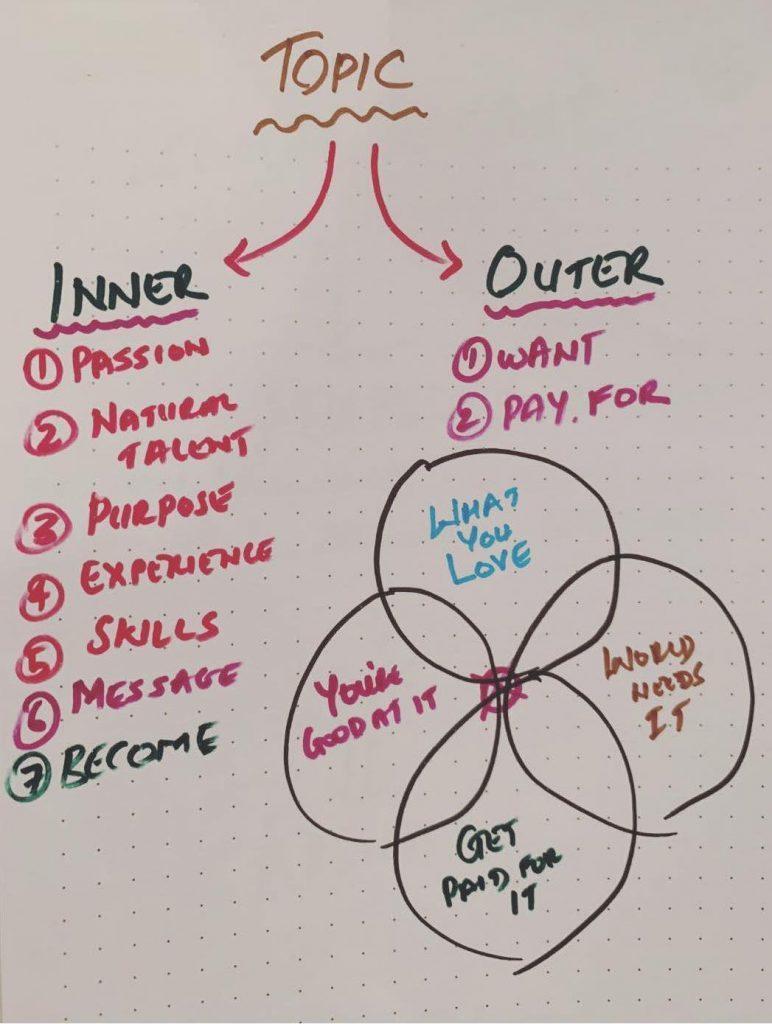 TOPIC
INNER
① PASSION
② NATURAL
TALENT
③ PURPOSE
④ EXPERIENCE
⑤ SKILLS
⑥ MESSAGE
⑦ BECOME
OUTER
① WANT
② PAY FOR
WHAT
YOU
LOVE
YOU'RE
GOOD AT IT
WORLD
NEEDS
IT
GET
PAID FOR
IT